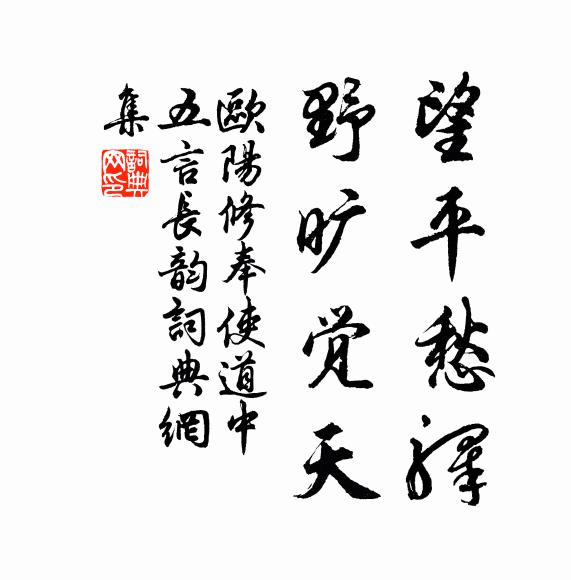 望平愁驛
野旷觉天
歐陽修奉使道中
五言長韵詞典網
集
詞典
网印